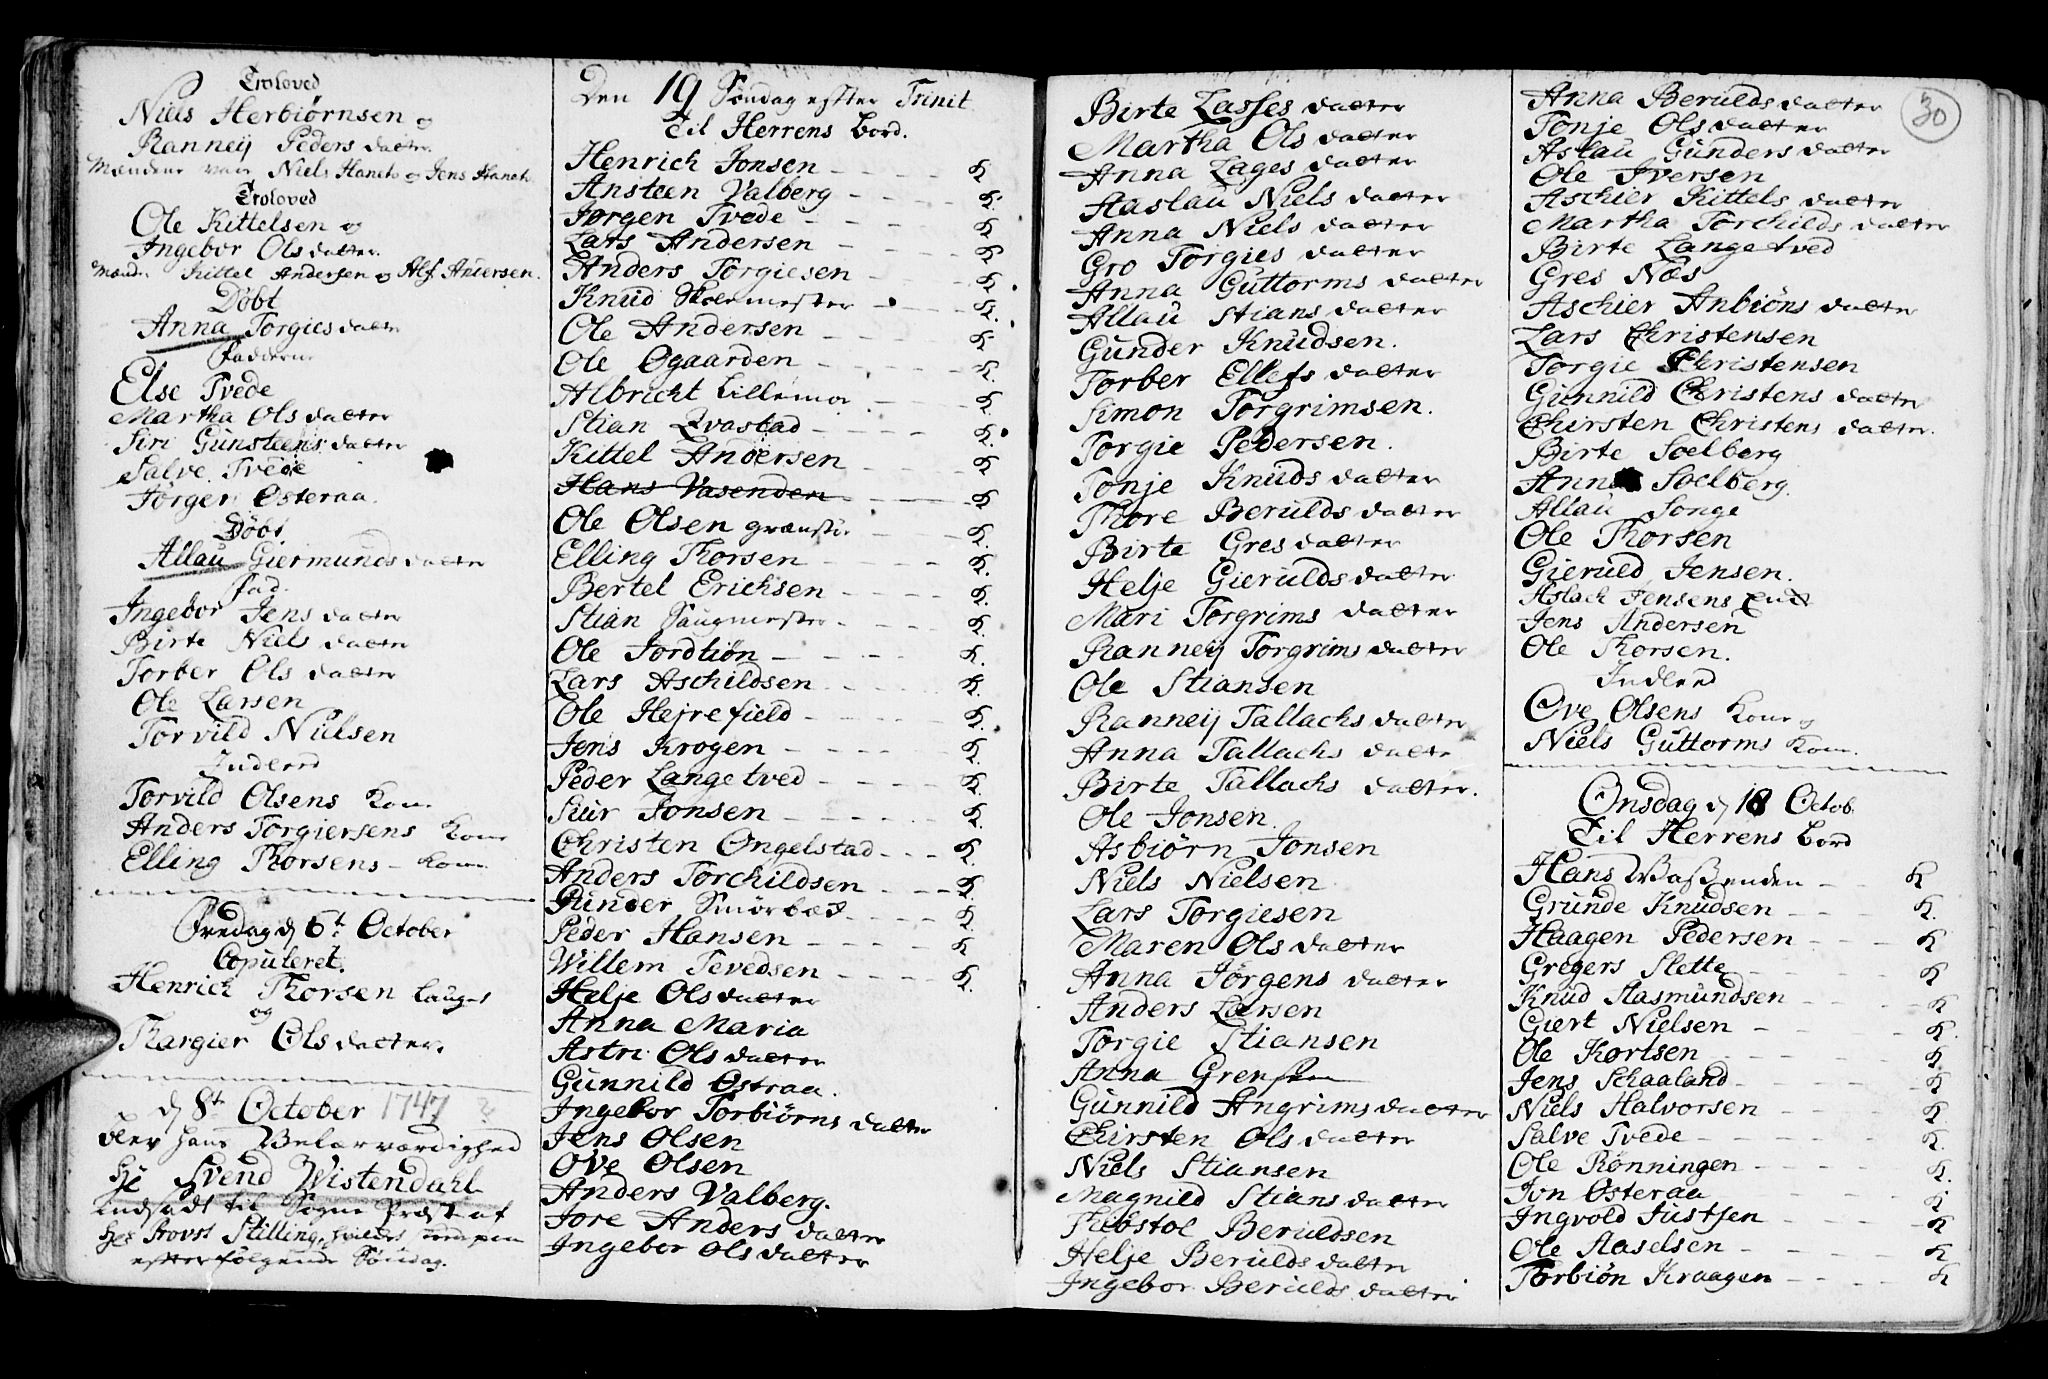 Troloved
Niels Herbiørnsen og
Ranneij Peders datter
Mændene var Niels Haneto og Jens Haneto
Troloved
Ole Kittelsen og
Ingebor Ols datter.
Mænd. Kittel Andersen og Alf Andersen.
Døbt
Anna Torgies datter
Faddere
Else Tvede
Martha Ols datter
Siri Gunsteens datter
Salve Tvede
Jørgen Østeraa.
Døbt.
Allau Giermunds datter
Fad.
Ingebor Jens datter
Birte Niels datter
Torber Ols datter
Ole Larsen
Torvild Nielsen
Indleed
Torvild Olsens Kone
Anders Torgiersens Kone
Elling Thorsens Kone
Fredag d 6t October
Copuleret.
Henrich Thorsen
og
Thargier Ols datter.
d 8t October 1747 ?
blev hans Velærværdighed
Hr Svend Wistendahl
indsadt til Sogne Præst af
Hr Provst Stilling,
efterfølgende Søndag.
Den 19 Søndag efter Trinit
Til Herrens bord.
Henrich Jonsen - K
Ansteen Valberg - K.
Jørgen Tvede - K
Lars Andersen - K
Anders Torgiesen - K.
Knud Skoemester - K.
Ole Andersen - K
Ole Øgaarden - K.
Albricht Lillemoe - K
Stian Qvastad - K.
Kittel Andersen - K
Hans Vasenden - K
Ole Olsen - K.
Elling Thorsen - K.
Bertel Erichsen - K.
Stian Saugmester - K.
Ole Jordtiøn - K.
Lars Aschildsen - K.
Ole Hejrefield - K.
Jens Krogen - K.
Peder Langetved - K.
Siur Jonsen - K.
Christen Ongelstad - K.
Anders Torchildsen - K.
Gunder Smørbæd - K
Peder Hansen - K
Willem Tevedsen - K.
Helje Ols datter
Anna Maria
Astri Ols datter
Gunnild Østraa.
Ingebor Torbiørns datter
Jens Olsen
Ove Olsen
Anders Valberg.
Tore Anders datter
Ingebor Ols datter
30
Birte Lasses datter
Martha Ols datter
Anna Lages datter
Aaslau Niels datter
Anna Niels datter
Gro Torgies datter
Anna Guttorms datter
Allau Stians datter
Gunder Knudsen.
Torber Ellefs datter
Simon Torgrimsen.
Torgie Pedersen.
Tonje Knuds datter
Thore Berulds datter
Birte Gres datter
Helje Gierulds datter
Mari Torgrims datter
Ranneij Torgrims datter
Ole Stiansen
Ranneij Tallachs datter
Anna Tallachs datter
Birte Tallachs datter.
Ole Jonsen.
Asbiørn Jonsen
Niels Nielsen
Lars Torgiesen
Maren Ols datter
Anna Jørgens datter
Anders Larsen
Torgie Stiansen
Anna Grensten
Gunnild Angrims datter
Chirsten Ols datter
Niels Stiansen
Magnild Stians datter
Thobstol Beruldsen
Helje Berulds datter
Ingebor Berulds datter
Anna Berulds datter
Tonje Ols datter
Aslau Gunders datter
Ole Iversen
Aschier Kittels datter
Martha Torchilds datter
Birte Langetved
Gres Næs
Aschier Anbiøns datter
Lars Christensen
Torgie Christensen
Gunnild Christens datter
Chirsten Christens datter.
Birte Soelberg
Anna Soelberg.
Allau Songe
Ole Thorsen
Gieruld Jensen.
Aslach Jensens
Jens Andersen
Ole Thorsen.
Indleed
Ove Olsens Kone og
Niels Guttorms Kone.
Onsdag d 18 Octob.
Til Herrens bord
Hans Waßenden - K
Grunde Knudsen - K.
Haagen Pedersen - K
Gregers Slette - K
Knud Aasmundsen - K
Giert Nielsen - K.
Ole Kortsen - K.
Jens Schaaland - K
Niels Halvorsen - K.
Salve Tvede - K.
Ole Rønningen - K.
Jon Østeraa - K
Ingvold Justsen - K
Ole Aaselsen - K
Torbiøn Kraagen - K